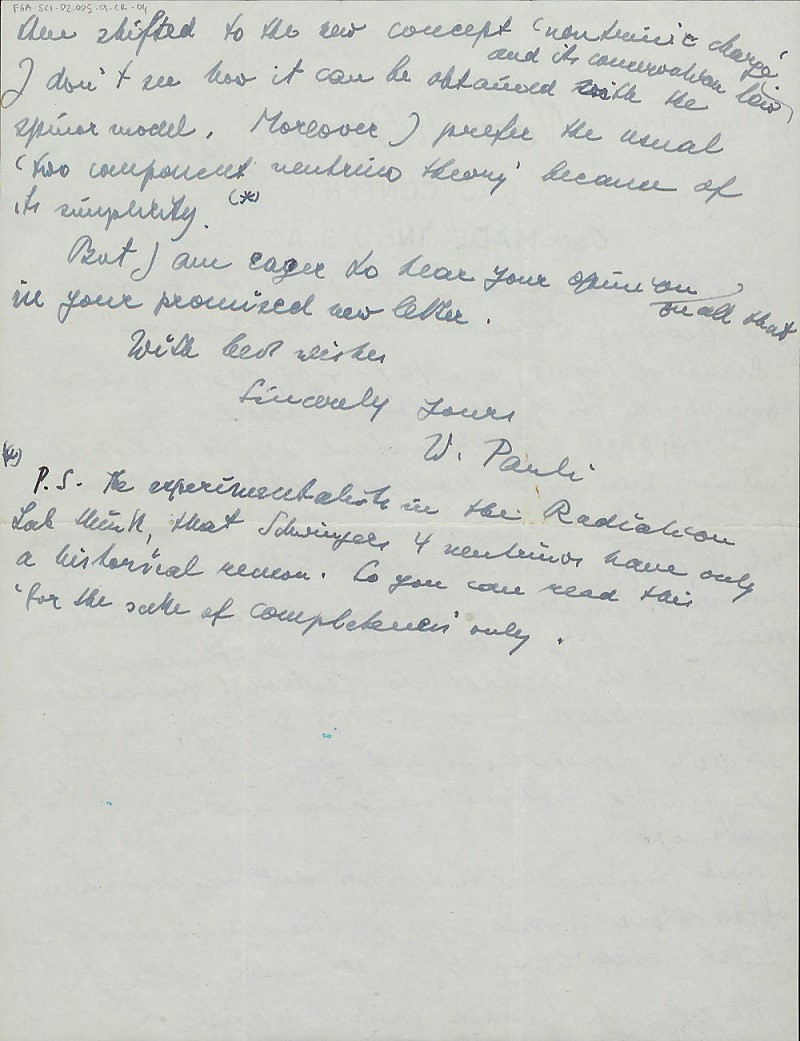 FGA-SCI-02.005.01-CR-04
then shifted to the new concept 'neutrinic charge'
and its conservation law
I don't see how it can be obtained with the
spinor model. Moreover I prefer the usual
'two component neutrino theory' because of
its simplicity. (*)
But I am eager to hear your opinion
on all that
in your promised new letter.
With best wishes
Sincerely Yours
W. Pauli
(*)
P.S. The experimentalists in the Radiation
Lab think, that Schwingers 4 neutrinos have only
a historical reason. So you can read this
'for the sake of completeness' only.